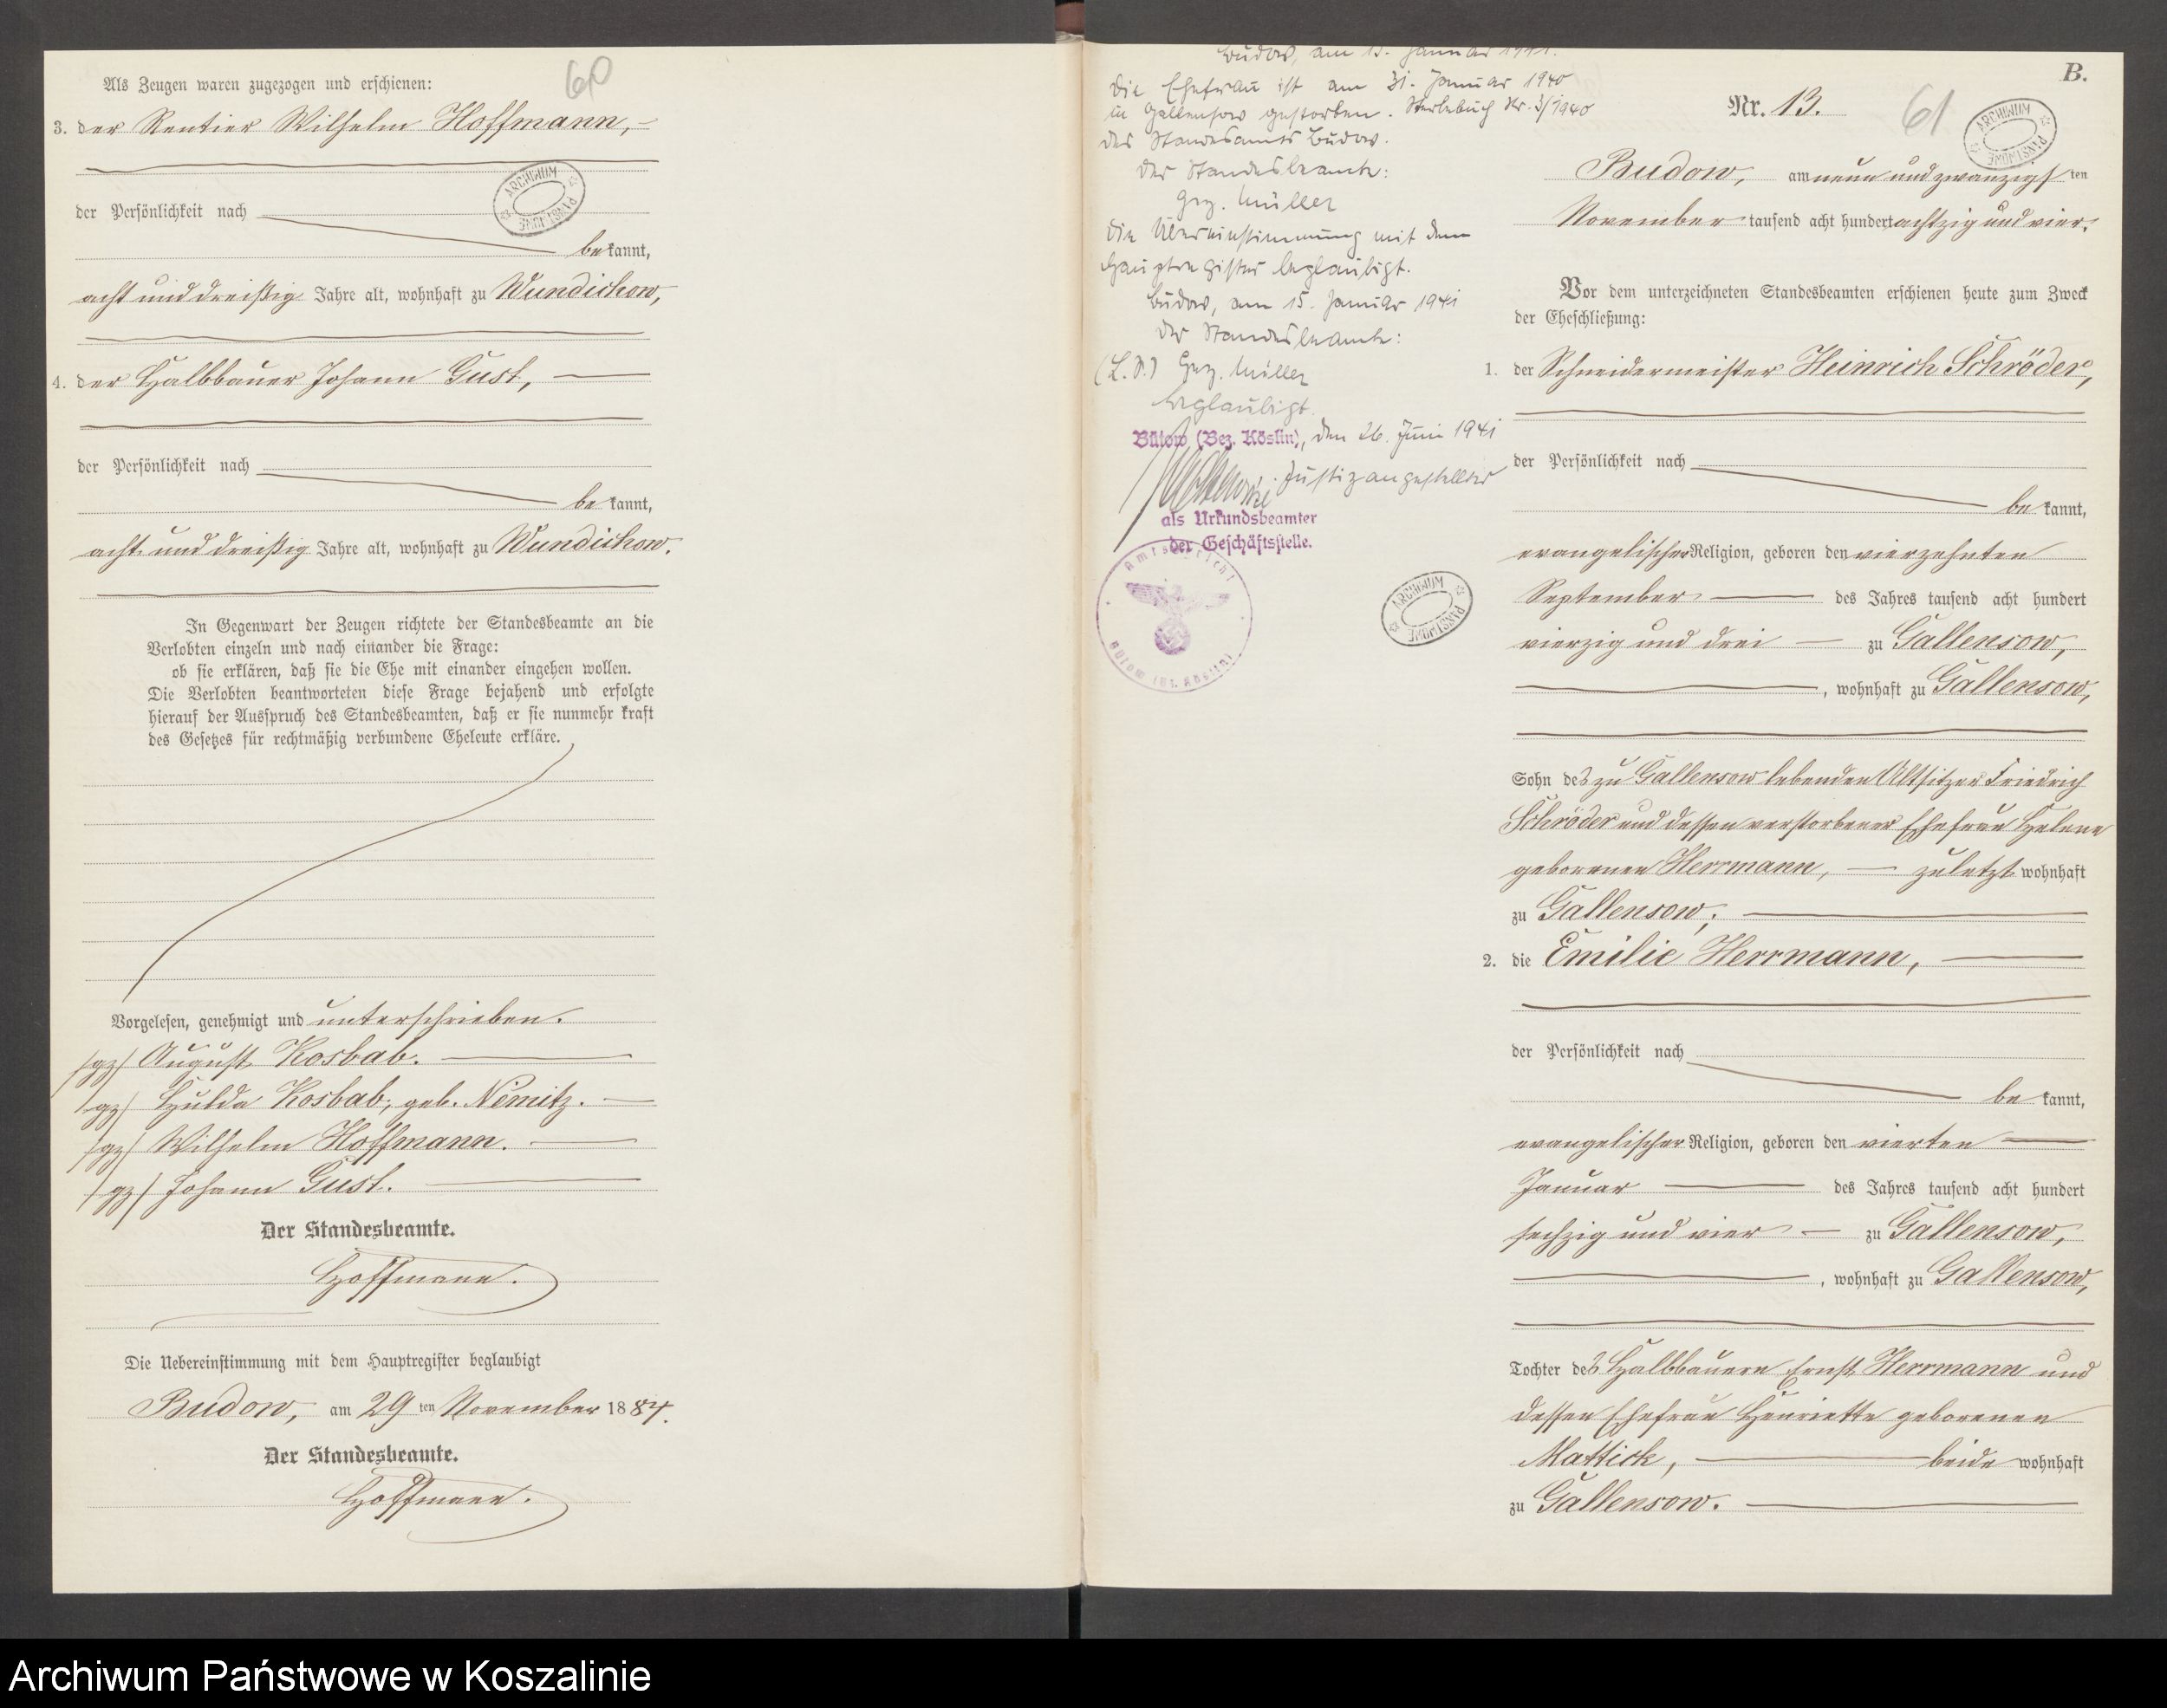 Als Zeugen waren zugezogen und erschienen:
60
3. der Rentier Wilhelm Hoffmann,
der Persönlichkeit nach
bekannt,
acht und dreißig Jahre alt, wohnhaft zu Wundichow,
4. der Halbbauer Johann Gust,
der Persönlichkeit nach
bekannt,
acht und dreißig Jahre alt, wohnhaft zu Wundichow.
In Gegenwart der Zeugen richtete der Standesbeamte an die
Verlobten einzeln und nach einander die Frage:
ob sie erklären, daß sie die Ehe mit einander eingehen wollen.
Die Verlobten beantworteten diese Frage bejahend und erfolgte
hierauf der Ausspruch des Standesbeamten, daß er sie nunmehr kraft
des Gesetzes für rechtmäßig verbundene Eheleute erkläre.
Vorgelesen, genehmigt und unterschrieben.
/gz/ August Kosbab.
/gz/ Hulda Kosbab, geb. Nemitz.
/gz/ Wilhelm Hoffmann.
/gz/ Johann Gust.
Der Standesbeamte.
Hoffmann.
Die Uebereinstimmung mit dem Hauptregister beglaubigt
Budow, am 29ten November 1884.
Der Standesbeamte.
Hoffmann.
ARCHIWUM PAŃSTWOWE
Budow, am 15. Januar 1941.
Die Ehefrau ist am 31. Januar 1940
in Gallensow gestorben. Sterbebuch Nr. 3/1940
des Standesamts Budow.
Der Standesbeamte:
Gez. Müller
Die Übereinstimmung mit dem
Hauptregister beglaubigt.
Budow, am 15. Januar 1941
Der Standesbeamte:
(L.S.) Gez. Müller
Beglaubigt.
Bütow (Bez. Köslin), den 26. Juni 1941
Justizangestellter
als Urkundsbeamter
der Geschäftsstelle.
Amtsgericht
Bütow (Bz. Köslin)
ARCHIWUM PAŃSTWOWE
B.
Nr. 13.
61
ARCHIWUM PAŃSTWOWE
Budow, am neun und zwanzigsten
November tausend acht hundert achtzig und vier.
Vor dem unterzeichneten Standesbeamten erschienen heute zum Zweck
der Eheschließung:
1. der Schneidermeister Heinrich Schröder,
der Persönlichkeit nach
bekannt,
evangelischer Religion, geboren den vierzehnten
September des Jahres tausend acht hundert
vierzig und drei zu Gallensow,
, wohnhaft zu Gallensow,
Sohn des zu Gallensow lebenden Altsitzer Friedrich
Schröder und dessen verstorbener Ehefrau Helene
geborenen Herrmann, zuletzt wohnhaft
zu Gallensow;
2. die Emilie Herrmann,
der Persönlichkeit nach
bekannt,
evangelischer Religion, geboren den vierten
Januar des Jahres tausend acht hundert
sechzig und vier zu Gallensow,
, wohnhaft zu Gallensow,
Tochter des Halbbauern Ernst Herrmann und
dessen Ehefrau Henriette geborenen
Mattick, beide wohnhaft
zu Gallensow.
Archiwum Państwowe w Koszalinie